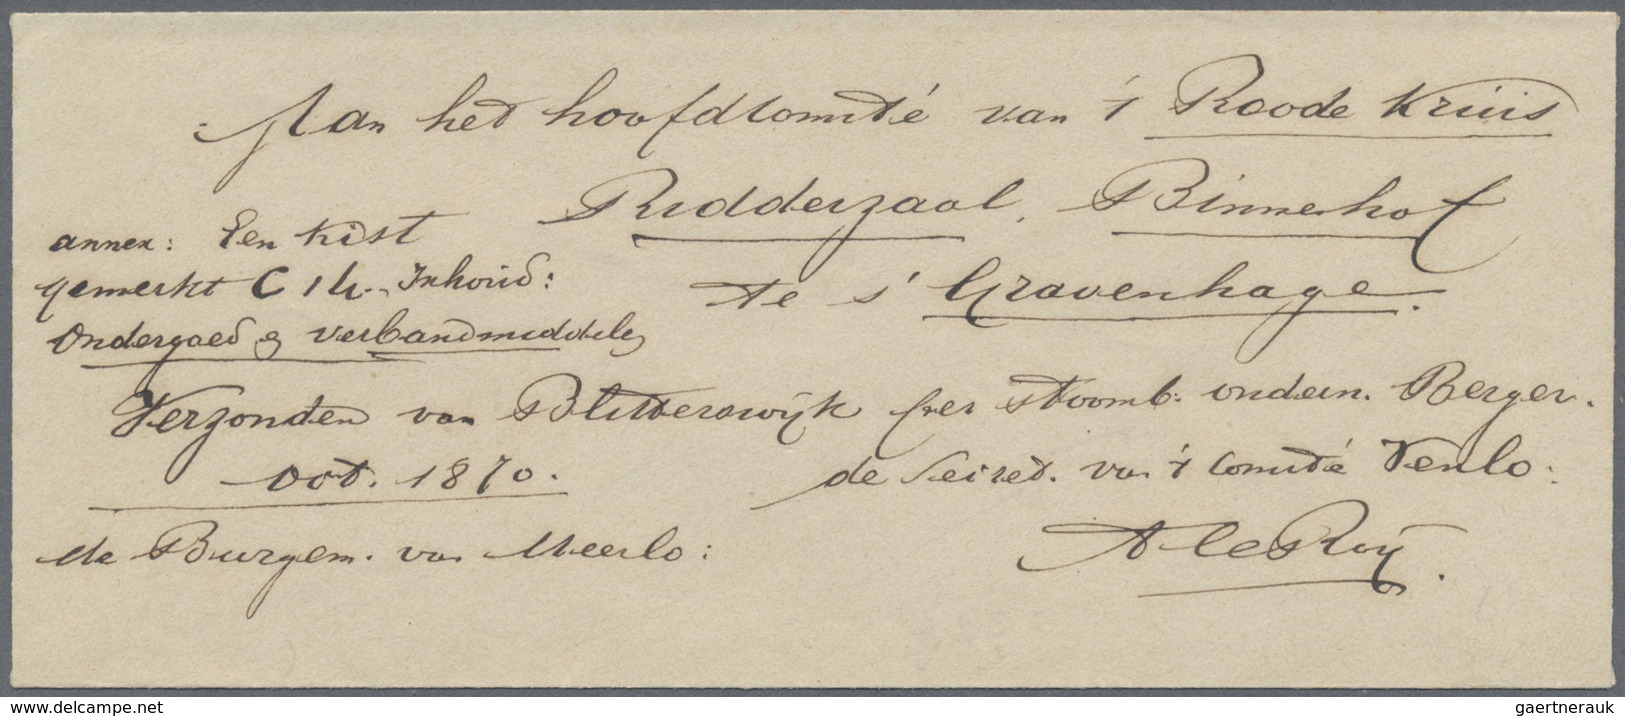 Aan het hoofdcomité van 't Roode Kruis
Ridderzaal, Binnenhof
te s' Gravenhage.
annex: Een kist
gemerkt C 14., Inhoud:
Ondergoed & verbandmiddelen
Verzonden van Blitterswijk per stoomb: ondern. Berger.
Oct. 1870.
de Secret. van 't Comité Venlo:
de Burgem. van Meerlo:
A leRoy.
www.delcampe.net
gaertnerauk